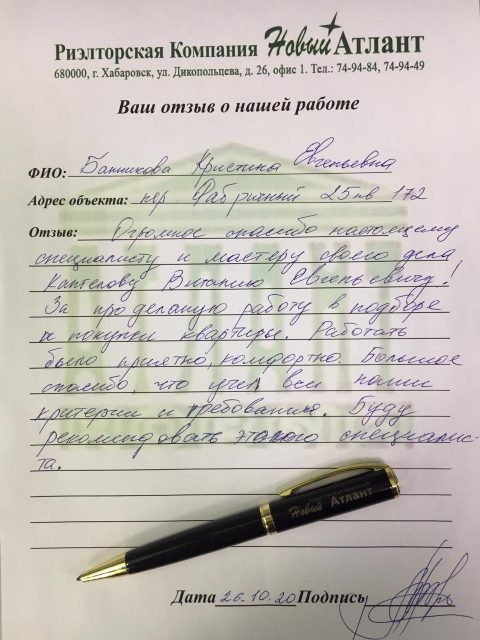 Риэлторская Компания Новый Атлант
680000, г. Хабаровск, ул. Дикопольцева, д. 26, офис 1. Тел.: 74-94-84, 74-94-49
Ваш отзыв о нашей работе
ФИО: Банникова Кристина Евгеньевна
Адрес объекта: пер Фабричный 25 кв 172
Отзыв: Огромное спасибо настоящему
специалисту и мастеру своего дела
Кантелову Виталию Евгеньевичу!
За проделаную работу в подборе
и покупки квартиры. Работать
было приятно, комфортно. Большое
спасибо, что учел все наши
критерии и требования. Буду
рекомендовать этого специалис-
та.
Новый Атлант
Дата 26.10.20 Подпись